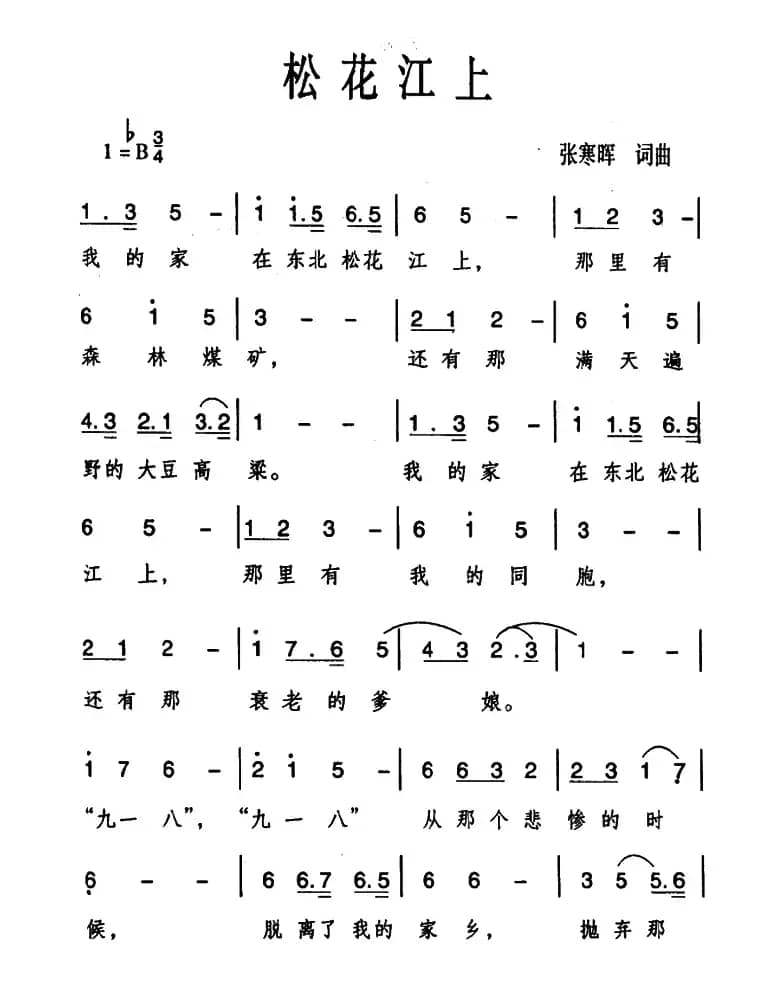 松花江上
1=♭B 3/4
张寒晖 词曲
1.3 5 - | i i.5 6.5 | 6 5 - | 1 2 3 - |
我的家 在东北松花 江上， 那里有
6 i 5 | 3 - - | 2 1 2 - | 6 i 5 |
森林煤矿， 还有那 满天遍
4.3 2.1 3.2 | 1 - - | 1.3 5 - | i i.5 6.5 |
野的大豆高 粱。 我的家 在东北松花
6 5 - | 1 2 3 - | 6 i 5 | 3 - - |
江上， 那里有 我的同 胞，
2 1 2 - | i 7.6 5 | 4 3 2.3 | 1 - - |
还有那 衰老的爹 娘。
i 7 6 - | 2 i 5 - | 6 6 3 2 | 2 3 1 7 |
“九一八”， “九一八” 从那个悲 惨的时
6 - - | 6 6.7 6.5 | 6 6 - | 3 5 5.6 |
候， 脱离了我的 家乡， 抛弃那